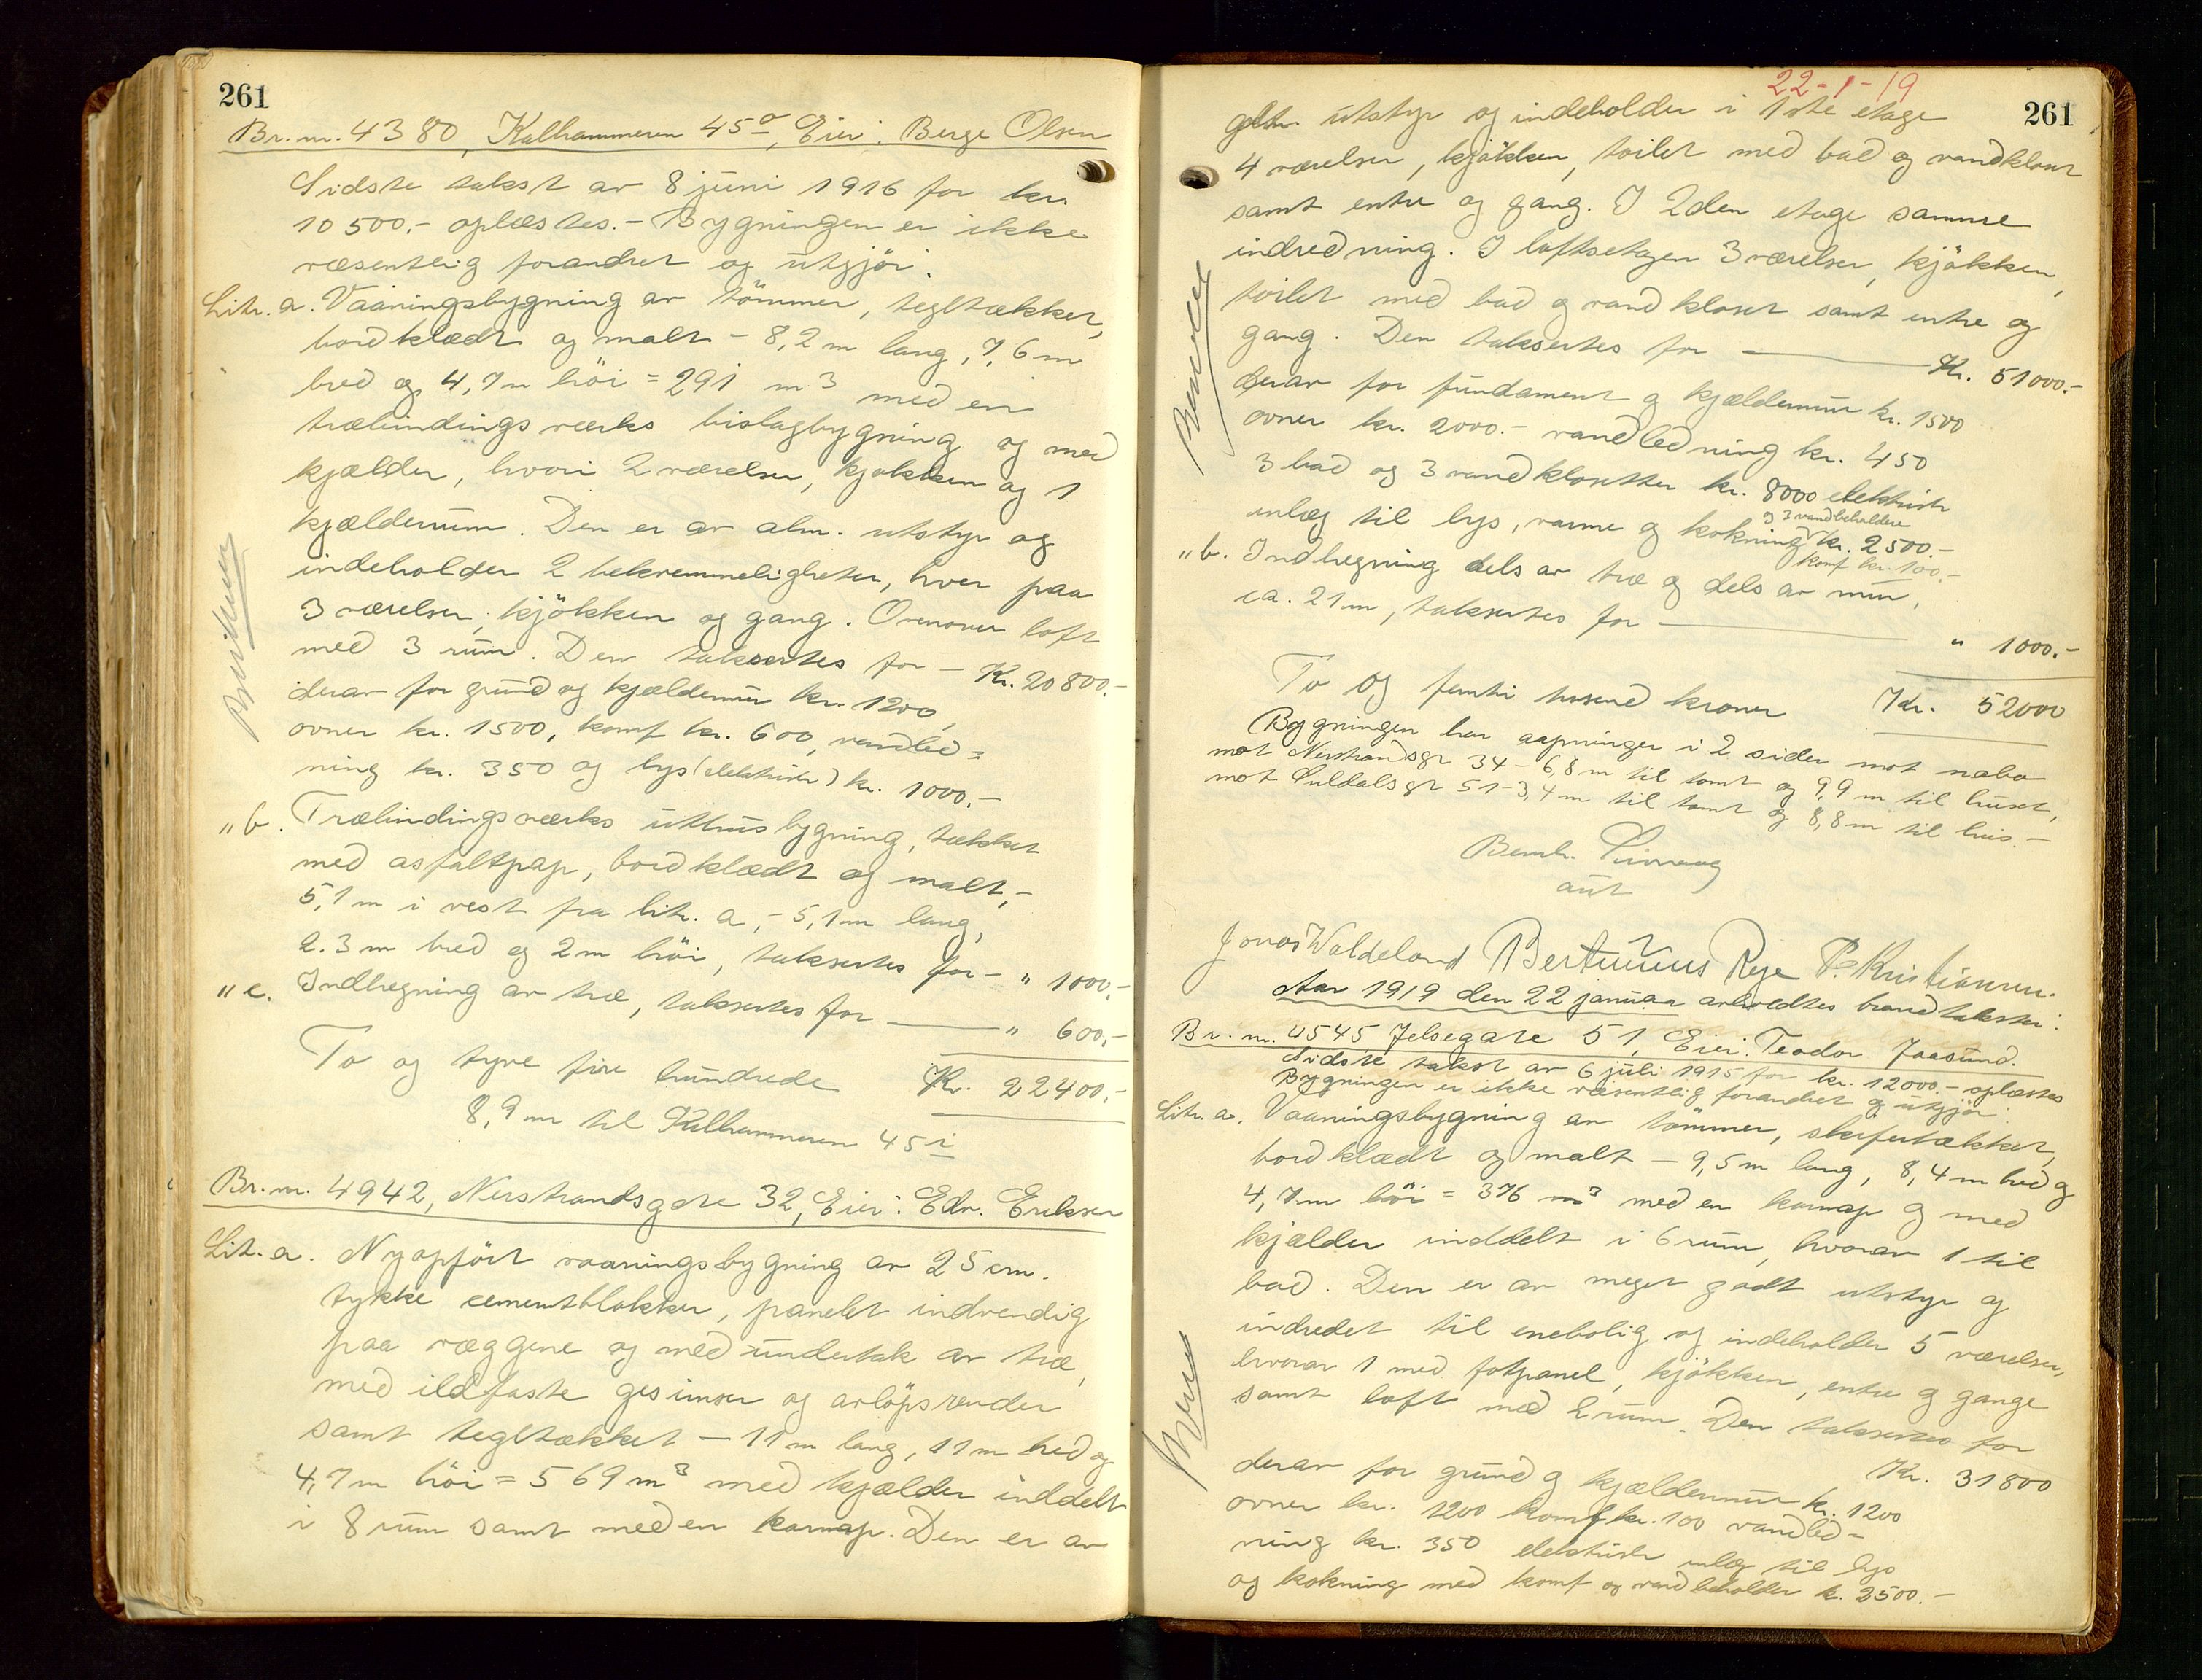 261
Br. nr. 4380, Kalhammeren 45a, Eier: Berge Olsen
Sidste takst av 8 juni 1916 for kr.
10 500.- oplæstes. - Bygningen er ikke
væsentlig forandret og utgjör:
Litr. a. Vaaningsbygning av tömmer, tegltækket,
bordklædt og malt - 8,2 m lang, 7,6 m
bred og 4,7 m höi = 291 m3 med en
træbindingsværks bislagbygning og med
kjælder, hvori 2 værelser, kjøkken og 1
kjælderrum. Den er av alm. utstyr og
indeholder 2 bekvemmeligheter, hver paa
3 værelser, kjökken og gang. Ovenover loft
med 3 rum. Den taksertes for - Kr. 20 800.-
derav for grund og kjældermur kr. 1200,
ovner kr. 1500, komf kr. 600, vandled=
ning kr. 350 og lys (elektrisk) kr. 1000.-
" b. Træbindingsværks uthusbygning, tækket
med asfaltpap, bordklædt og malt,-
5,1 m i vest fra litr. a, - 5,1 m lang,
2.3 m bred og 2 m höi, taksertes for - " 1000.-
" c. Indhegning av træ, taksertes for - " 600,-
To og tyve fire hundrede Kr. 22400.-
8,9 m til Kalhammeren 45 i
Br. nr. 4942, Nerstrandsgate 32, Eier: Edv. Eriksen
Lit. a. Nyopfört vaaningsbygning av 25 cm.
tykke cementblokker, panelet indvendig
paa væggene og med undertak av træ,
med ildfaste gesimser og avlöpsrender
samt tegltækket - 11 m lang, 11 m bred og
4,7 m höi = 569 m3 med kjælder inddelt
i 8 rum samt med en karnap. Den er av
22-1-19
261
godt utstyr og indeholder i 1ste etage
4 værelser, kjökken, toilet med bad og vandkloset
samt entre og gang. I 2den etage samme
indredning. I loftsetagen 3 værelser, kjökken,
toilet med bad og vandkloset samt entre og
gang. Den taksertes for - Kr. 51000.-
derav for fundament og kjældermur kr. 1500
ovner kr. 2000.- vandledning kr. 450
3 bad og 3 vandklosetter kr. 8000 elektrisk
og 3 vandbeholdere
inlæg til lys, varme og kokning kr. 2500.-
komf kr. 100.-
" b. Indhegning dels av træ og dels av mur,
ca. 21 m, taksertes for - " 1000.-
To og femti tusend kroner Kr. 52000
Bygningen har aapninger i 2 sider mot nabo
mot Nerstrandsgt 34 - 6,8 m til tomt og 9,9 m til huset,
mot Suldalsgt 51 - 3,4 m til tomt og 8,8 m til hus.-
Bernh.
aut
Jonas Waldeland Bertinius Rege P. Kristiansen.
Aar 1919 den 22 januar avholdtes brandtakster:
Br. nr. 4545, Jelsegate 51, Eier: Teodor Jaasund.
Sidste takst av 6 juli 1915 for kr. 12000.- oplæstes
Bygningen er ikke væsentlig forandret og utgjör:
Litr. a. Vaaningsbygning av tömmer, skifertækket,
bordklædt og malt - 9,5 m lang, 8,4 m bred og
4,7 m höi = 376 m3 med en karnap og med
kjælder inddelt i 6 rum, hvorav 1 til
bad. Den er av meget godt utstyr og
indredet til enebolig og indeholder 5 værelser,
hvorav 1 med fotpanel, kjökken, entre og gange
samt loft med 2 rum. Den taksertes for
Kr. 31800
derav for grund og kjældermur kr. 1200
ovner kr. 1200 komf kr. 100 vandled-
ning kr. 350 elektrisk inlæg til lys
og kokning med komf og vandbeholder k. 2500.-